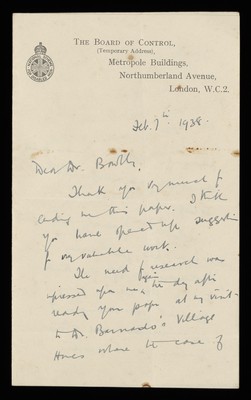 THE BOARD OF CONTROL,
(Temporary Address),
Metropole Buildings,
Northumberland Avenue,
London, W.C.2.
Feb. 7th 1938.
Dear Dr. Bowlby,
Thank you very much for
sending me this paper. I think
you have opened up suggestions
for very valuable work.
The need for research was
impressed upon me again the day after
reading your paper at my visit
to Dr. Barnardo's Village
Homes where the case of